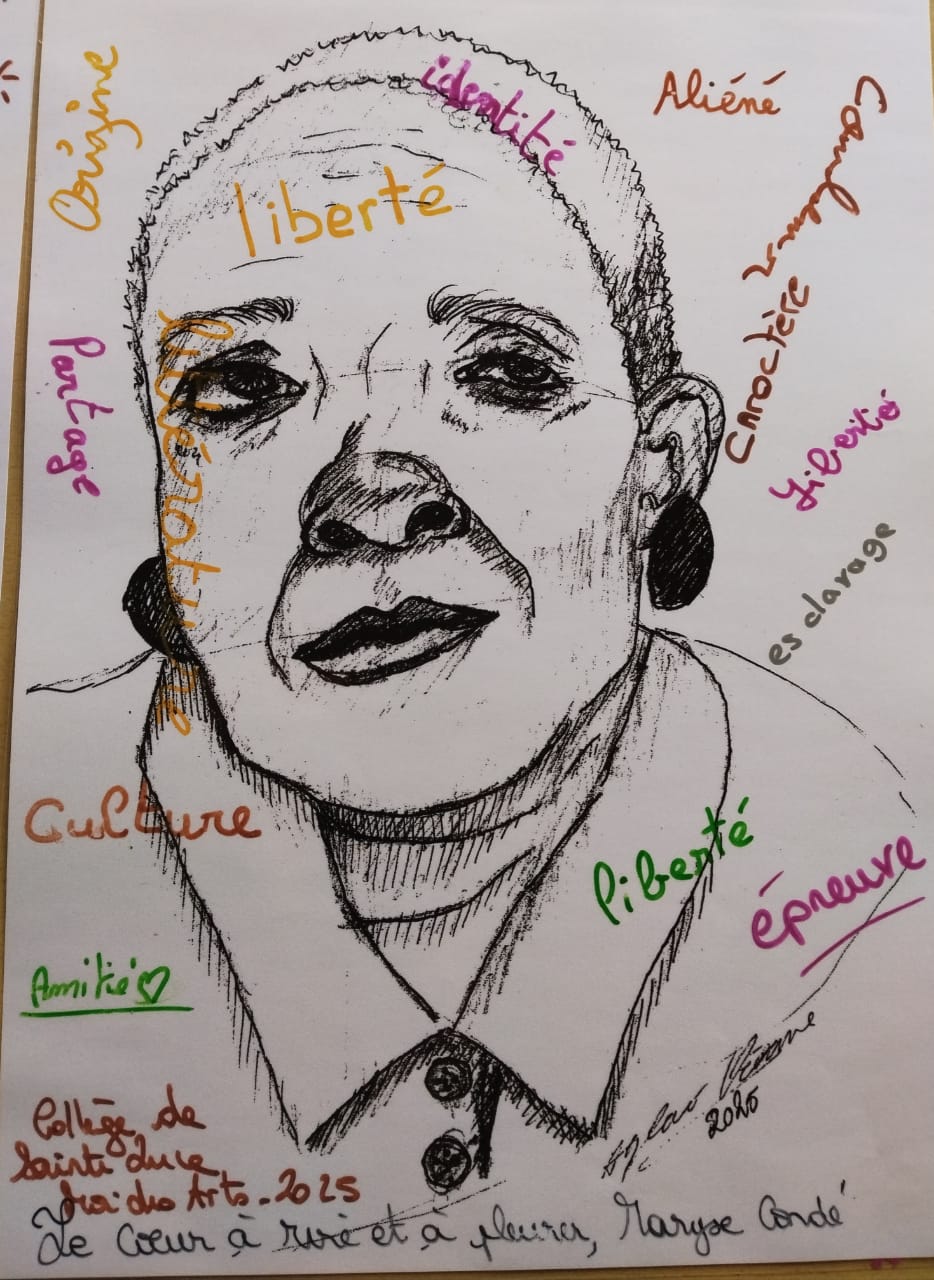 Origine
identité
Aliéné
liberté
Caractère
Partage
littérature
liberté
esclavage
Culture
liberté
épreuve
Amitié ♡
Collège de
Sainte Luce
Mai des Arts - 2025
2025
Le Coeur à rire et à pleurer, Maryse Condé